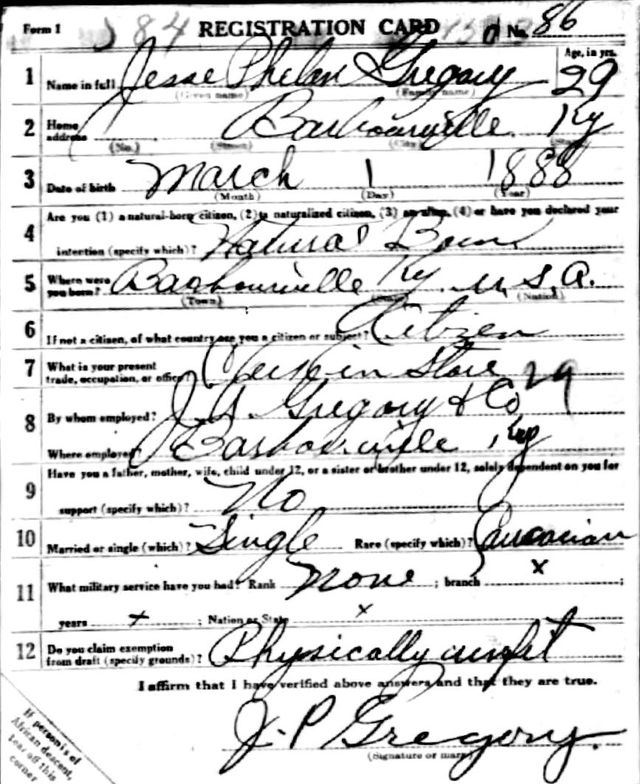 Form 1 REGISTRATION CARD No. 86
Age, in yrs.
1 Name in full Jesse Phelan Gregory 29
(Given name) (Family name)
2 Home address Barbourville Ky
(No.) (Street) (City) (State)
3 Date of birth March 1 1888
(Month) (Day) (Year)
4 Are you (1) a natural-born citizen, (2) a naturalized citizen, (3) an alien, (4) or have you declared your
intention (specify which)? Natural Born
5 Where were you born? Barbourville Ky U.S.A.
(Town) (State) (Nation)
6 If not a citizen, of what country are you a citizen or subject? Citizen
7 What is your present trade, occupation, or office? Clerk in Store 29
8 By whom employed? J. A. Gregory & Co
Where employed? Barbourville Ky
9 Have you a father, mother, wife, child under 12, or a sister or brother under 12, solely dependent on you for
support (specify which)? No
10 Married or single (which)? Single Race (specify which)? Caucasian
11 What military service have you had? Rank None ; branch x ;
years x ; Nation or State x
12 Do you claim exemption from draft (specify grounds)? Physically unfit
I affirm that I have verified above answers and that they are true.
J. P Gregory.
(Signature or mark)
If person is of
African descent,
tear off this
corner